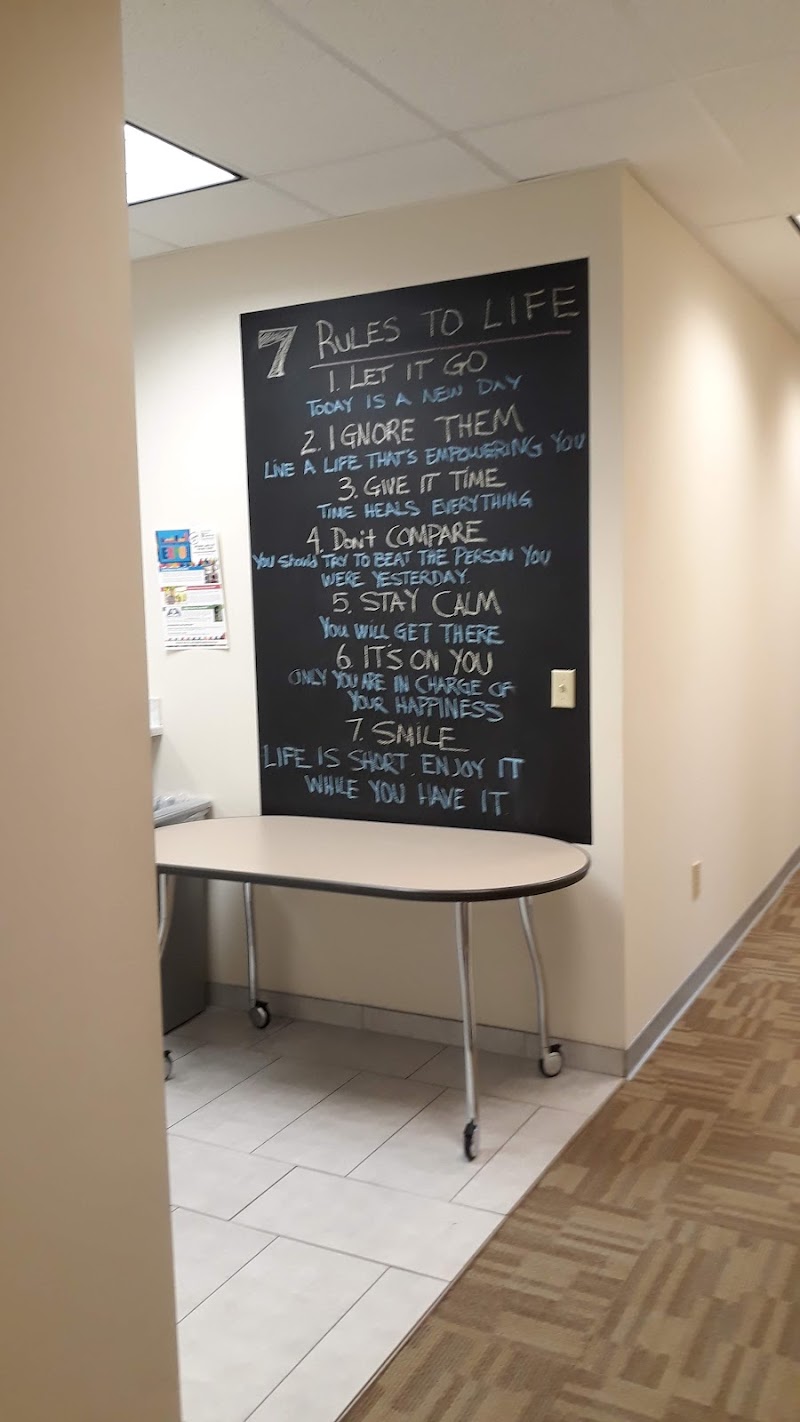 7 RULES TO LIFE
1. LET IT GO
TODAY IS A NEW DAY
2. IGNORE THEM
LIVE A LIFE THAT'S EMPOWERING YOU
3. GIVE IT TIME
TIME HEALS EVERYTHING
4. Don't COMPARE
You should TRY TO BEAT THE PERSON YOU
WERE YESTERDAY.
5. STAY CALM
YOU WILL GET THERE
6. IT'S ON YOU
ONLY YOU ARE IN CHARGE OF
YOUR HAPPINESS
7. SMILE
LIFE IS SHORT. ENJOY IT
WHILE YOU HAVE IT.